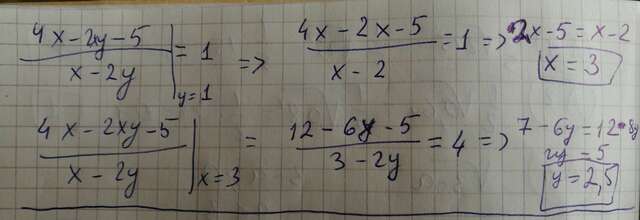 (4x - 2xy - 5)/(x - 2y) |y=1 = 1 => (4x - 2x - 5)/(x - 2) = 1 => 2x - 5 = x - 2
x = 3
(4x - 2xy - 5)/(x - 2y) |x=3 = (12 - 6y - 5)/(3 - 2y) = 4 => 7 - 6y = 12 - 8y
2y = 5
y = 2,5